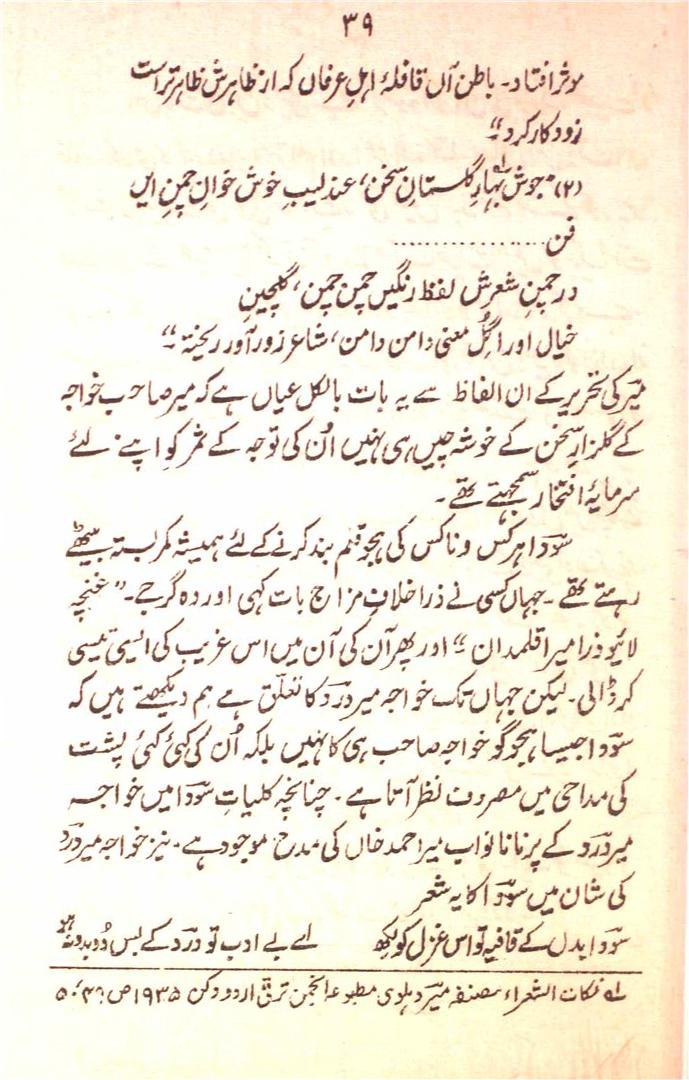 ۳۹
موثر افتاد۔ باطن آں قافلۂ اہلِ عرفاں کہ از ظاہرش ظاہر تر است
زود کار کرد"
(۲) "جوشِ بہارِ گلستانِ سخن، عندلیبِ خوش خوانِ چمنِ ایں
فن..................
در چمنِ شعرش لفظ رنگیں چمن چمن، گلچینِ
خیال اورا گلِ معنی دامن دامن، شاعر زور آور ریختہ۔"
میرؔ کی تحریر کے ان الفاظ سے یہ بات بالکل عیاں ہے کہ میر صاحب خواجہ
کے گلزارِ سخن کے خوشہ چیں ہی نہیں اُن کی توجہ کے ثمر کو اپنے لئے
سرمایۂ افتخار سمجھتے تھے۔
سوؔدا ہر کس و ناکس کی ہجو قلم بند کرنے کے لئے ہمیشہ کمر بستہ بیٹھے
رہتے تھے۔ جہاں کسی نے ذرا خلافِ مزاج بات کہی اور وہ گرجے۔ "غنچہ
لائیو ذرا میرا قلمدان" اور پھر آن کی آن میں اس غریب کی ایسی تیسی
کر ڈالی۔ لیکن جہاں تک خواجہ میر دردؔ کا تعلق ہے ہم دیکھتے ہیں کہ
سوؔدا جیسا ہجو گو خواجہ صاحب ہی کا نہیں بلکہ اُن کی کئی کئی پشت
کی مداحی میں مصروف نظر آتا ہے۔ چنانچہ کلیاتِ سوؔدا میں خواجہ
میر دردؔ کے پرنانا نواب میر احمد خاں کی مدح موجود ہے۔ نیز خواجہ میر دردؔ
کی شان میں سوؔدا کا یہ شعر
سوؔدا بدل کے قافیہ تو اس غزل کو لکھ اے بے ادب تو دردؔ کے بس دُو بدو نہ ہو
۱؎ نکات الشعراء مصنفہ میرؔ دہلوی مطبوعہ انجمن ترقی اردو دکن ۱۹۳۵ ص ۴۹، ۵۰